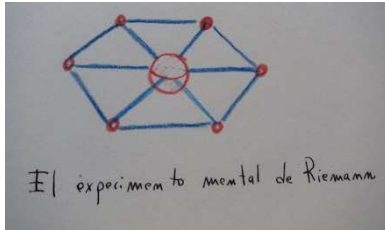 El experimento mental de Riemann